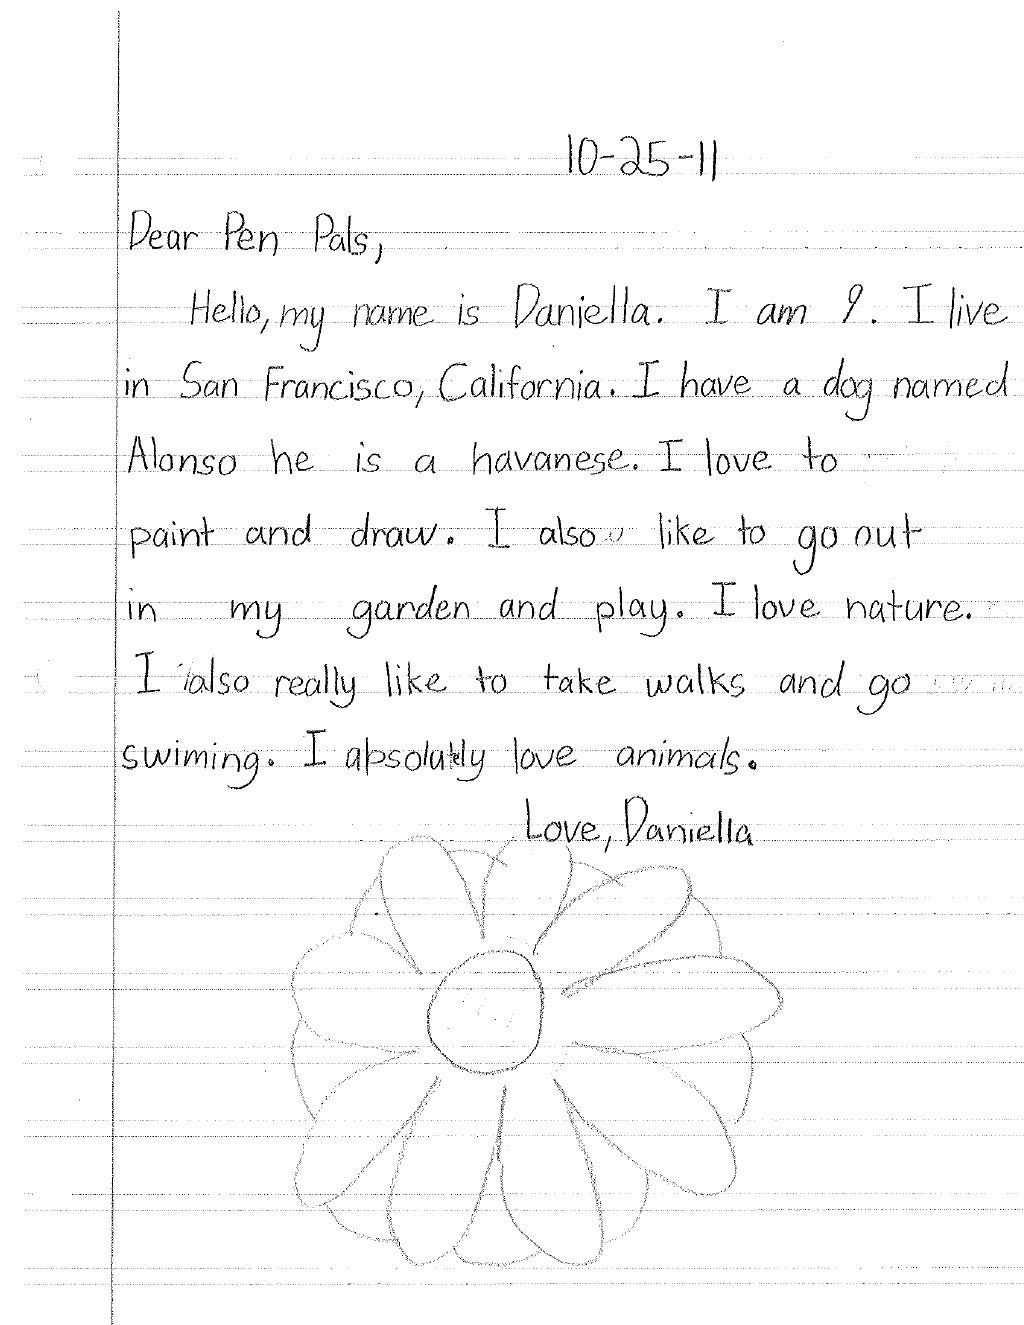 10-25-11
Dear Pen Pals,
Hello, my name is Daniella. I am 9. I live
in San Francisco, California. I have a dog named
Alonso he is a havanese. I love to
paint and draw. I also like to go out
in my garden and play. I love nature.
I also really like to take walks and go
swiming. I absolutly love animals.
Love, Daniella